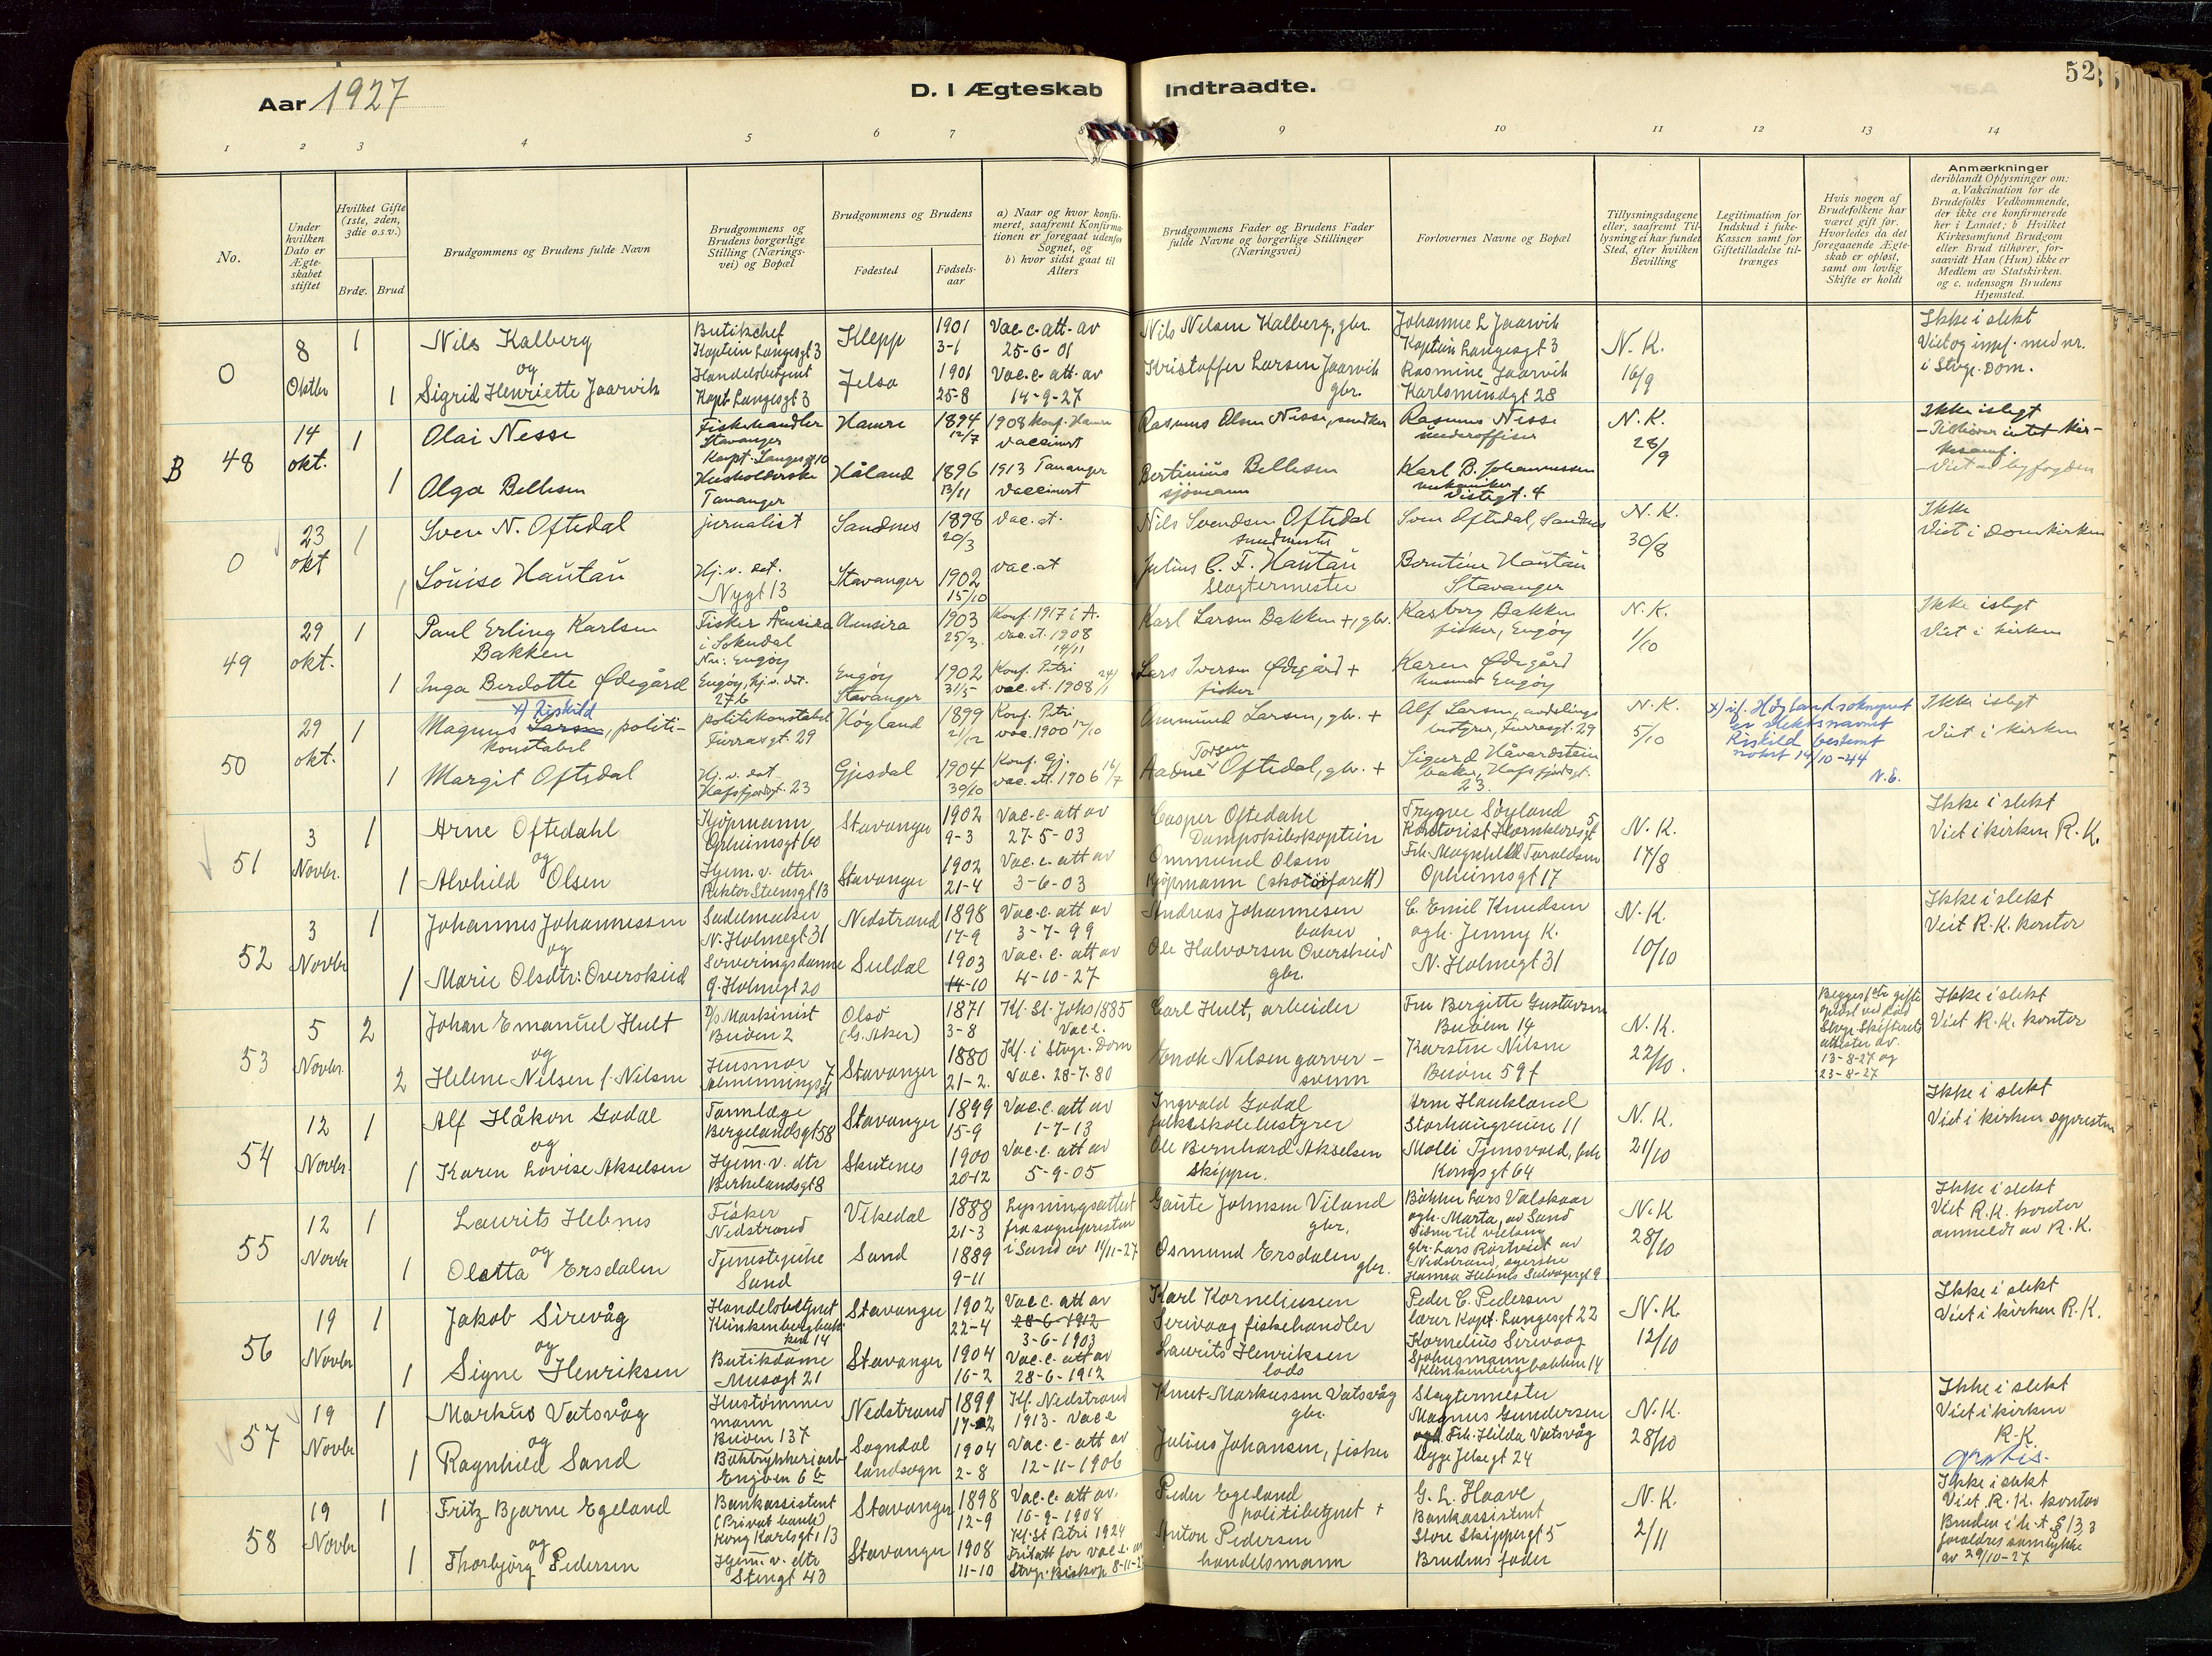 52
Aar 1927
D. I Ægteskab Indtraadte.
1 2 3 4 5 6 7 8 9 10 11 12 13 14
No.
Under hvilken Dato er Ægteskabet stiftet
Hvilket Gifte (1ste, 2den, 3die o.s.v.)
Brdg. Brud
Brudgommens og Brudens fulde Navn
Brudgommens og Brudens borgerlige Stilling (Næringsvei) og Bopæl
Brudgommens og Brudens
Fødested
Fødselsaar
a) Naar og hvor konfirmeret, saafremt Konfirmationen er foregaat udenfor Sognet, og
b) hvor sidst gaat til Alters
Brudgommens Fader og Brudens Fader fulde Navne og borgerlige Stillinger (Næringsvei)
Forlovernes Navne og Bopæl
Tillysningsdagene eller, saafremt Tillysning ei har fundet Sted, efter hvilken Bevilling
Legitimation for Indskud i Enke-Kassen samt for Giftetilladelse tiltrænges
Hvis nogen af Brudefolkene har været gift før. Hvorledes da det foregaaende Ægteskab er opløst, samt om lovlig Skifte er holdt
Anmærkninger
deriblandt Oplysninger om: a. Vakcination for de Brudefolks Vedkommende, der ikke ere konfirmerede her i Landet; b Hvilket Kirkesamfund Brudgom eller Brud tilhører, forsaavidt Han (Hun) ikke er Medlem av Statskirken. og c. udensogn Brudens Hjemsted.
0 8 Oktbr 1 Nils Kalberg Butikchef Kaptein Langesgt 3 Klepp 1901 3-1 Vac.c. att. av 25-6-01 Nils Nilsen Kalberg, gbr. Johanne L Jaarvik Kaptein Langesgt 3 N.K. 16/9 Ikke i slekt
og
1 Sigrid Henriette Jaarvik Handelsbetjent Kapt. Langesgt 3 Jelsa 1901 25-8 Vac.c. att. av 14-9-27 Kristoffer Larsen Jaarvik gbr. Rasmine Jaarvik Karlsmindgt 28 i Stvgr. Dom.
B 48 14 okt. 1 Olai Nesse Fiskehandler Stavanger Kapt. Langesgt 10 Hamre 1894 12/7 1908 Konf. Hamre vaccinert Rasmus Olsen Nesse, snekker Rasmus Nesse underoffiser N.K. 28/9 Ikke i slegt
1 Olga Bellesen Husholderske Tananger Håland 1896 13/11 1913 Tananger vaccinert Bertinius Bellesen sjømann Karl B. Johannessen mekaniker Vistegt. 4 Viet av byfogden
0 23 okt 1 Sven N. Oftedal jurnalist Sandnes 1898 20/3 vac. at. Nils Svendsen Oftedal Sven Oftedal, Sandnes N.K. 30/8 Ikke Viet i Domkirken
1 Louise Hautau Hj. v. dat. Nygt 13 Stavanger 1902 15/10 vac. at Julius C. F. Hautau Slagtermester Berntine Hautau Stavanger
49 29 okt. 1 Paul Erling Karlsen Bakken Fisker Åensira i Sokndal Nu: Engøy Aensira 1903 25/3 Konf. 1917 i A. vac. at. 1908 14/11 Karl Larsen Bakken +, gbr. Kasborg Bakken fisker, Engøy N.K. 1/10 Ikke i slegt Viet i kirken
1 Inga Berdotte Ødegård Engøy, hj. v. dat. 276 Engøy Stavanger 1902 31/5 Konf. Petri vac. at. 1908 24/1 Lars Iversen Ødegård + fisker Karen Ødegård husmor Engøy
50 29 okt. 1 Magnus Larsen, politikonstabel x) Riskild politikonstabel Furrasgt. 29 Høyland 1899 21/12 Konf. Petri vac. 1900 12/10 Ommund Larsen, gbr. + Alf Larsen, avdelings bestyrer, Furrasgt. 29 N.K. 5/10 x) if. Høyland sokneprest er slektsnavnet Riskild bestemt notert 14/10-44 N.E. Ikke i slegt Viet i kirken
1 Margit Oftedal Hj. v. dat Hafsfjordgt. 23 Gjesdal 1904 30/10 Konf. Gj. vac. att. 1906 16/7 Aadne Torsen Oftedal, gbr. + Sigurd Håvardstein baker, Hafsfjordgt. 23.
51 3 Novbr. 1 Arne Oftedahl Kjøpmann Opheimsgt 60 Stavanger 1902 9-3 Vac.c. att av 27-5-03 Casper Oftedahl Dampskibskaptein Trygve Søyland Kontorist Hornklovesgt 5 N.K. 17/8 Ikke i slekt Viet i kirken R.K.
og
1 Alvhild Olsen Hjem. v. dtr. Rektor Steensgt 13 Stavanger 1902 21-4 Vac.c. att av 3-6-03 Ommund Olsen Kjøpmann (skotøiforett) Frk. Magnhild Taraldsen Opheimsgt 17
52 3 Novbr 1 Johannes Johannessen Sadelmaker N. Holmegt 31 Nedstrand 1898 17-9 Vac.c. att av 3-7-99 Andreas Johannesen baker C. Emil Knudsen ogh. Jenny K. N. Holmegt 31 N.K. 10/10 Ikke i slekt Viet R.K. kontor
og
1 Marie Olsdtr. Overskeid Serveringsdame Q. Holmegt 20 Suldal 1903 14-10 Vac.c. att av 4-10-27 Ole Halvorsen Overskeid gbr.
53 5 Novbr. 2 Johan Emanuel Hult D/s Maskinist Buøen 2 Oslo (G. Aker) 1871 3-8 Kf. St. Johs 1885 Vacc. Carl Hult, arbeider Fru Bergitte Gustavsen Buøen 14 N.K. 22/10 Begges 1ste gifte opløst ved død Stvgr. Skifteretts attester av 13-8-27 og 23-8-27 Ikke i slekt Viet R.K. kontor
og
2 Helene Nilsen f. Nilsen Husmor Almenningsgt 7 Stavanger 1880 21-2. Kf. i Stvgr. Dom Vac. 28-7-80 Enok Nilsen garversvenn Karsten Nilsen Buøen 59 f
54 12 Novbr. 1 Alf Håkon Godal Tannlæge Bergelandsgt 58 Stavanger 1899 15-9 Vac.c. att av 1-7-13 Ingvald Godal folkeskolebestyrer Arne Haukland Storhaugveien 11 N.K. 21/10 Ikke i slekt Viet i kirken sogneprestn
og
1 Karen Lovise Akselsen Hjem. v. dtr Birkelandsgt 8 Skutenes 1900 20-12 Vac.c. att av 5-9-05 Ole Bernhard Akselsen Skipper. Molli Tjensvold, frk Kongsgt 64
55 12 Novbr 1 Laurits Hebnes Fisker Nedstrand Vikedal 1888 21-3 Lysningsattest fra sognepresten i Sand av 11/11-27 Gaute Johnsen Viland gbr. Bakker Lars Valskaar ogh. Marta, av Sand N.K. 28/10 Ikke i slekt Viet R.K. kontor anmeldt av R.K.
og
1 Oletta Ersdalen Tjenestepike Sand Sand 1889 9-11 Osmund Ersdalen gbr. gbr. Lars Rørtveit av Nedstrand,
56 19 Novbr 1 Jakob Sirevåg Handelsbetjent Klinkenbergbakken 14 Stavanger 1902 22-4 Vac.c. att av 28-6-1912 3-6-1903 Karl Korneliussen Serivaag fiskehandler Peder C. Pedersen lærer Kapt. Langesgt 22 N.K. 12/10 Ikke i slekt Viet i kirken R.K.
og
1 Signe Henriksen Butikdame Musegt 21 Stavanger 1904 16-2 Vac.c. att av 28-6-1912 Laurits Henriksen lods Kornelius Sirevaag Sjøhusmann Klinkenbergbakken 14
57 19 Novbr 1 Markus Vatsvåg Hustømmermann Buøen 137 Nedstrand 1899 17-12 Kf. Nedstrand 1913. Vacc Knut Markussen Vatsvåg gbr. Slagtermester Magnus Gundersen N.K. 28/10 Ikke i slekt Viet i kirken R.K. gratis.
og
1 Ragnhild Sand Boktrykkeriarb. Engøen 6 b Sogndal landsogn 1904 2-8 Vac.c. att av 12-11-1906 Julius Johansen, fisker Frk. Hilda Vatsvåg Lyge Jelsegt 24
58 19 Novbr 1 Fritz Bjarne Egeland Bankassistent (Privat bank) Kong Karlsgt 113 Stavanger 1898 12-9 Vac.c. att av. 16-9-1908 Peder Egeland politibetjent + G. L. Haave Bankassistent Store Skippergt 5 N.K. 2/11 Ikke i slekt Viet R.K. kontor
og
1 Thorbjørg Pedersen Hjem. v. dtr Stengt 43 Stavanger 1908 11-10 Kf. St Petri 1924 Fritatt for vacc. av Stvgr. Biskop 8-11-2 Anton Pedersen handelsmann Brudens fader foreldres samtykke av 29/10-27